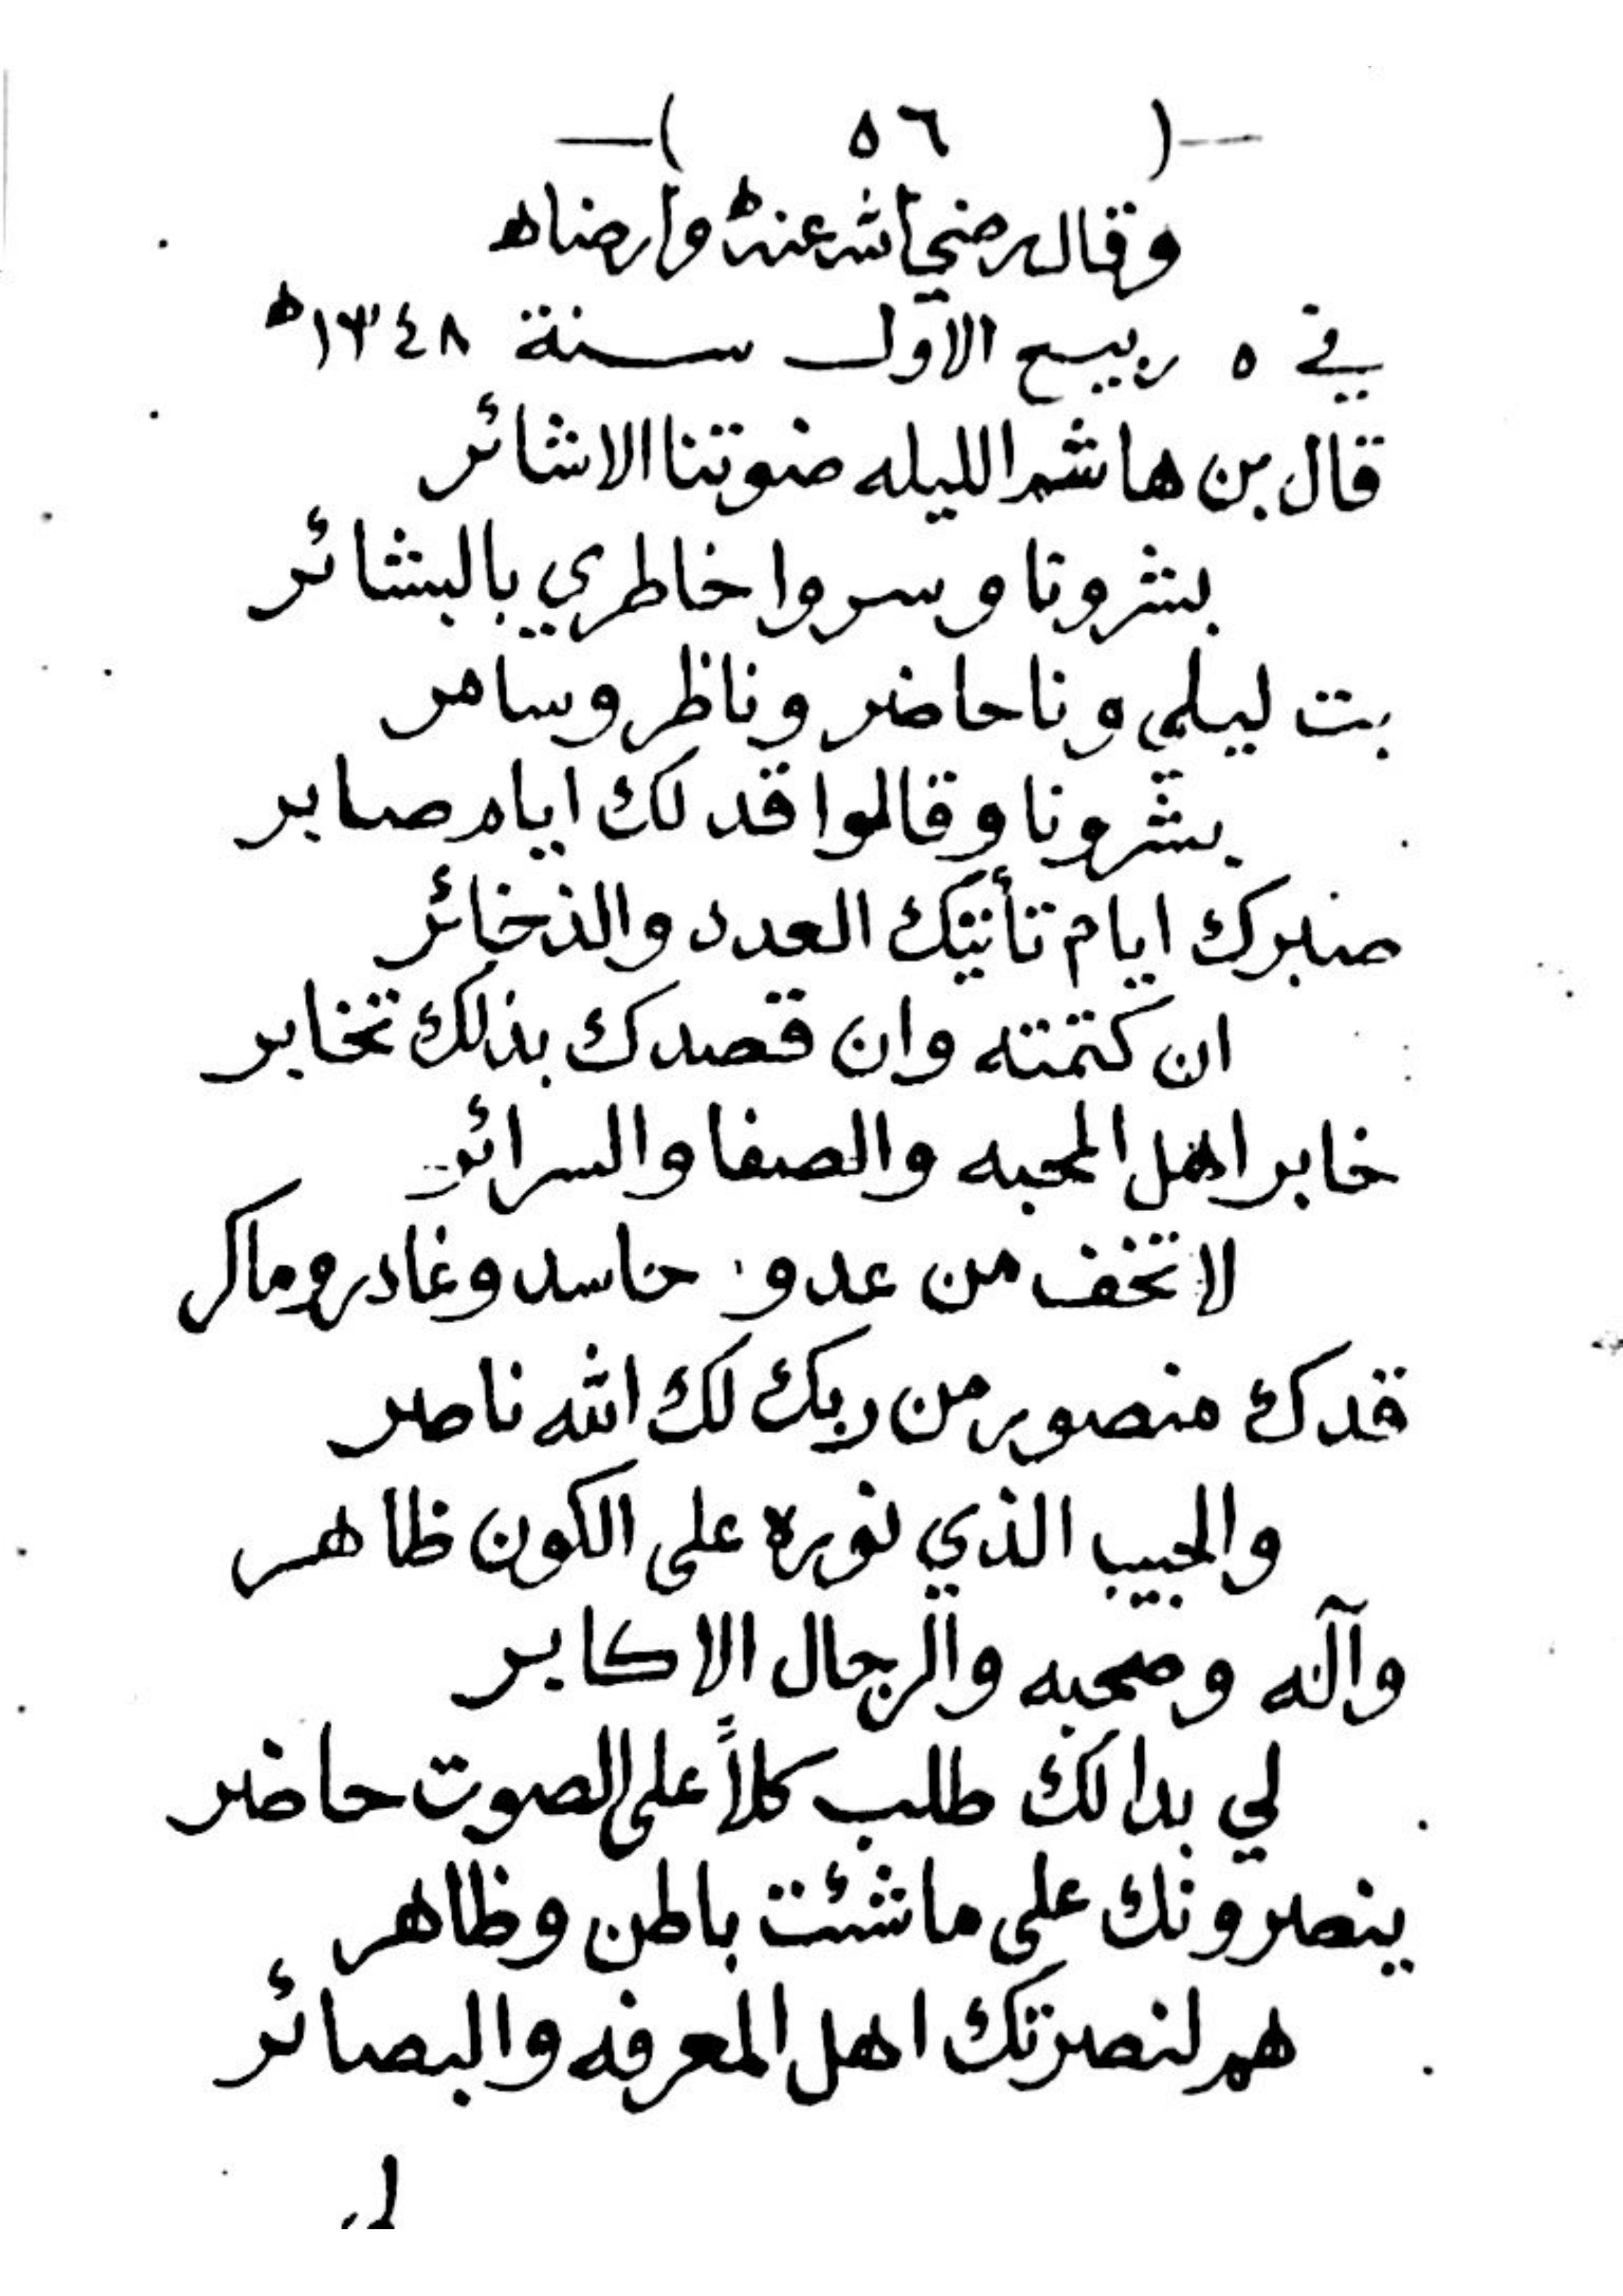 ( ٥٦ )
وقال رضي الله عنه وأرضاه
في ٥ ربيع الاول سنة ١٣٤٨ه
قال بن هاشم الليله ضوتنا الاشائر
بشرونا وسروا خاطري بالبشائر
بت ليلي ونا حاضر وناظر وساهر
بشرونا وقالوا قد لك ايام صابر
صبرك ايام تأتيك العدد والذخائر
ان كتمته وان قصدك بذلك تخابر
خابر اهل المحبه والصفا والسرائر
لا تخف من عدو حاسد وغادر وماكر
قدك منصور من ربك لك الله ناصر
والحبيب الذي نوره على الكون ظاهر
وآله وصحبه والرجال الاكابر
لي بدا لك طلب كلاً على الصوت حاضر
ينصرونك على ما شئت باطن وظاهر
هم لنصرتك اهل المعرفه والبصائر